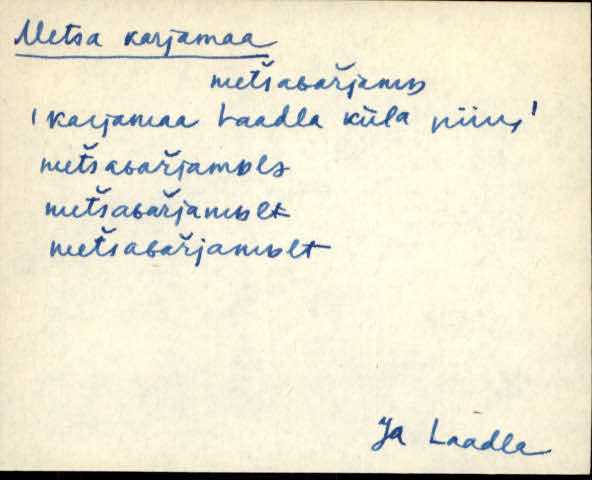 Metsa karjamaa
metšaʙařjamɒ
'karjamaa Laadla küla piires'
metšaʙařjamɒlɜ
metšaʙařjamɒlt
metšaʙařjamɒlt
Ja Laadla